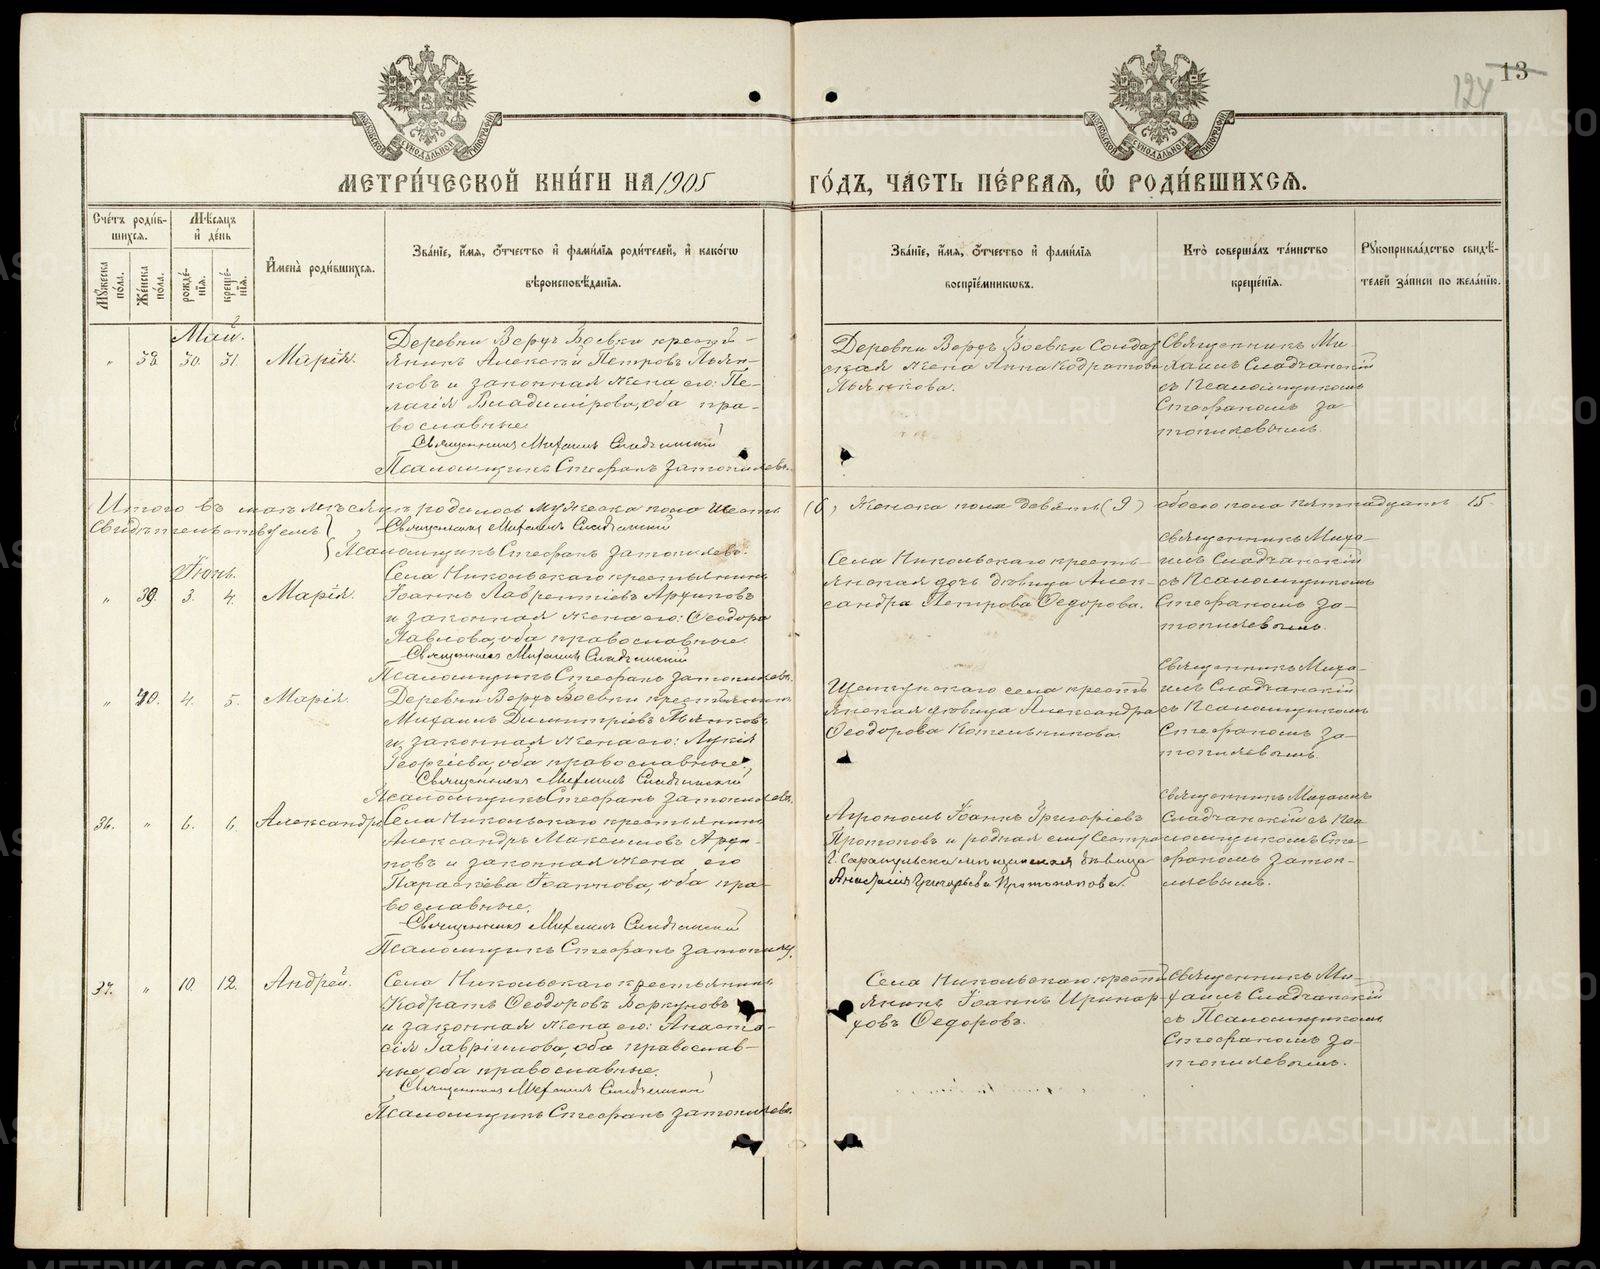 13
124
МОСКОВСКОЙ СѴНОДАЛЬНОЙ ТИПОГРАФІИ
МОСКОВСКОЙ СѴНОДАЛЬНОЙ ТИПОГРАФІИ
МЕТРИ́ЧЕСКОЙ КНИ́ГИ НА 1905 ГО́ДЪ, ЧА́СТЬ ПЕ́РВАЯ, Ѡ РОДИ́ВШИХСѦ.
Сче́тъ роди́в-
шихся.
Мѣсяцъ
и́ де́нь
И҆мена̀ роди́вшихся.
Зва́нїе, и҆́мя, ѻ҆́тчество и҆ фами́лїя роди́телей, и҆ како́гѡ
вѣроисповѣ́данїя.
Зва́нїе, и҆́мя, ѻ҆́тчество и҆ фами́лїя
воспрїе́мникѡвъ.
Кто̀ соверша́лъ та́инство
креще́нїя.
Рꙋкоприкла́дство свидѣ́-
телей за́писи по жела́нїю.
Мꙋ́жеска по́ла.
Же́нска по́ла.
рожде́-нїя.
креще́-нїя.
Май.
" 38. 30. 31. Марія.
Деревни Верхъ Боевки кресть-
янинъ Алексѣй Петровъ Пьян-
ковъ и законная жена его: Пе-
лагія Владимірова, оба пра-
вославные.
Священникъ Михаилъ Сладчанскій
Псаломщикъ Стефанъ Затопляевъ.
Деревни Верхъ Боевки Солдат
ская жена Анна Кодратова
Пьянкова.
Священникъ Ми-
хаилъ Сладчанскій
съ Псаломщикомъ
Стефаномъ За-
топляевымъ.
Итого въ маѣ мѣсяцѣ родилось мужеска пола шесть (6), Женска пола девять (9) обоего пола пятнадцать 15.
Свидѣтельствуемъ Священникъ Михаилъ Сладчанскій
Псаломщикъ Стефанъ Затопляевъ.
Іюнь.
" 39. 3. 4. Марія.
Села Никольскаго крестьянинъ
Іоаннъ Лаврентіевъ Ардиповъ
и законная жена его: Ѳеодора
Павлова, оба православные.
Священникъ Михаилъ Сладчанскій
Псаломщикъ Стефанъ Затопляевъ.
Села Никольскаго кресть-
янская дочь дѣвица Алек-
сандра Петрова Ѳедорова.
Священникъ Миха-
илъ Сладчанскій
съ Псаломщикомъ
Стефаномъ За-
топляевымъ.
" 40. 4. 5. Марія.
Деревни Верхъ Боевки крестьянинъ
Михаилъ Димитріевъ Пьянковъ
и законная жена его: Лукія
Георгіева, оба православные.
Священникъ Михаилъ Сладчанскій
Псаломщикъ Стефанъ Затопляевъ.
Щелкунскаго села кресть
янская дѣвица Александра
Ѳеодорова Котельникова.
Священникъ Миха-
илъ Сладчанскій
съ Псаломщикомъ
Стефаномъ За-
топляевымъ.
36. " 6. 6. Александръ
Села Никольскаго крестьянинъ
Александръ Максимовъ Арди-
повъ и законная жена его
Параскева Іоаннова, оба пра-
вославные.
Священникъ Михаилъ Сладчанскій
Псаломщикъ Стефанъ Затопляевъ.
Агрономъ Іоаннъ Григоріевъ
Протоповъ и родная ему Сестра
г. Сарапульска мѣщанская дѣвица
Анастасія Григорьева Протопопова.
Священникъ Михаилъ
Сладчанскій съ Пса
ломщикомъ Сте-
фаномъ Затоп-
ляевымъ.
37. " 10. 12. Андрей.
Села Никольскаго крестьянинъ
Кодратъ Ѳеодоровъ Боркуновъ
и законная жена его: Анаста-
сія Гавріилова, оба православ-
ные, оба православные.
Священникъ Михаилъ Сладчанскій
Псаломщикъ Стефанъ Затопляевъ.
Села Никольскаго кресть
янинъ Іоаннъ Иринар-
ховъ Ѳедоровъ.
Священникъ Ми-
хаилъ Сладчанскій
съ Псаломщикомъ
Стефаномъ За-
топляевымъ.
METRIKI.GASO-URAL.RU